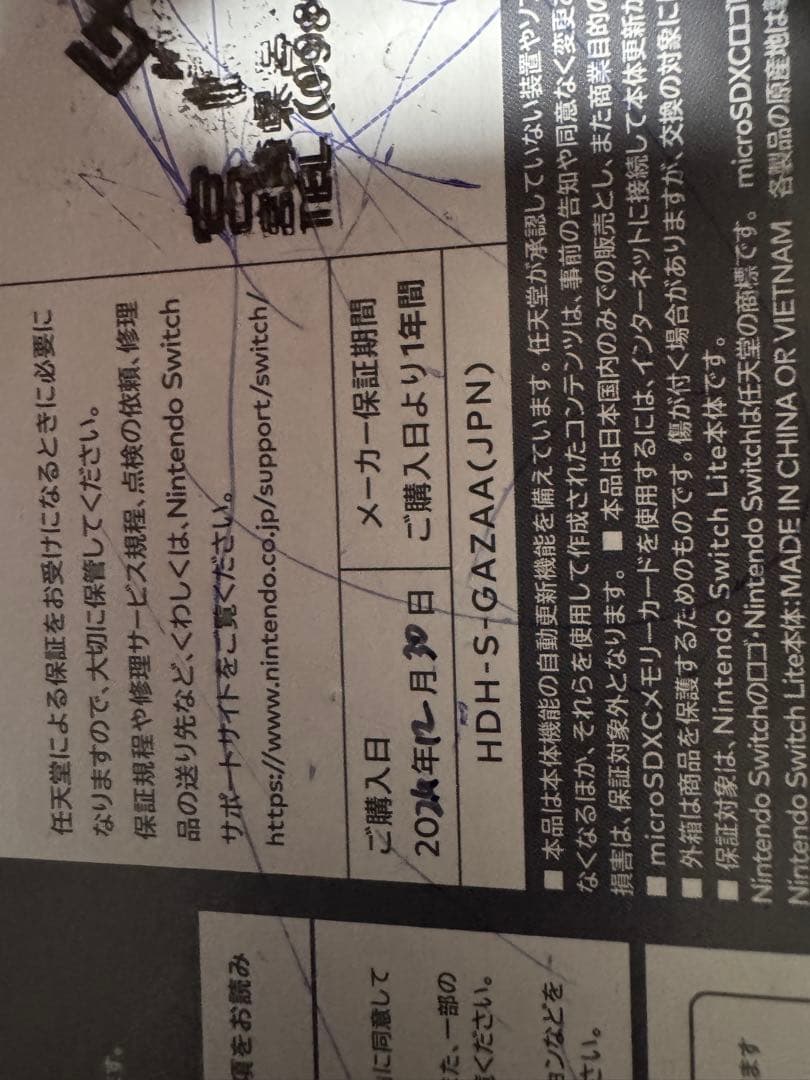 宮
TEL (098
任天堂による保証をお受けになるときに必要に
なりますので、大切に保管してください。
保証規程や修理サービス規程、点検の依頼、修理
品の送り先など、くわしくは、Nintendo Switch
サポートサイトをご覧ください。
https://www.nintendo.co.jp/support/switch/
ご購入日
2024年12月30日
メーカー保証期間
ご購入日より1年間
HDH-S-GAZAA(JPN)
■ 本品は本体機能の自動更新機能を備えています。任天堂が承認していない装置やソ
なくなるほか、それらを使用して作成されたコンテンツは、事前の告知や同意なく変更
損害は、保証対象外となります。 ■ 本品は日本国内のみでの販売とし、また商業目的の
■ microSDXCメモリーカードを使用するには、インターネットに接続して本体更新が
■ 外箱は商品を保護するためのものです。傷が付く場合がありますが、交換の対象に
■ 保証対象は、Nintendo Switch Lite本体です。 microSDXCロゴ
Nintendo Switchのロゴ・Nintendo Switchは任天堂の商標です。
Nintendo Switch Lite本体:MADE IN CHINA OR VIETNAM 各製品の原産地は
項をお読み
に同意して
た、一部の
ください。
ョンなどを
さい。
ます
す。